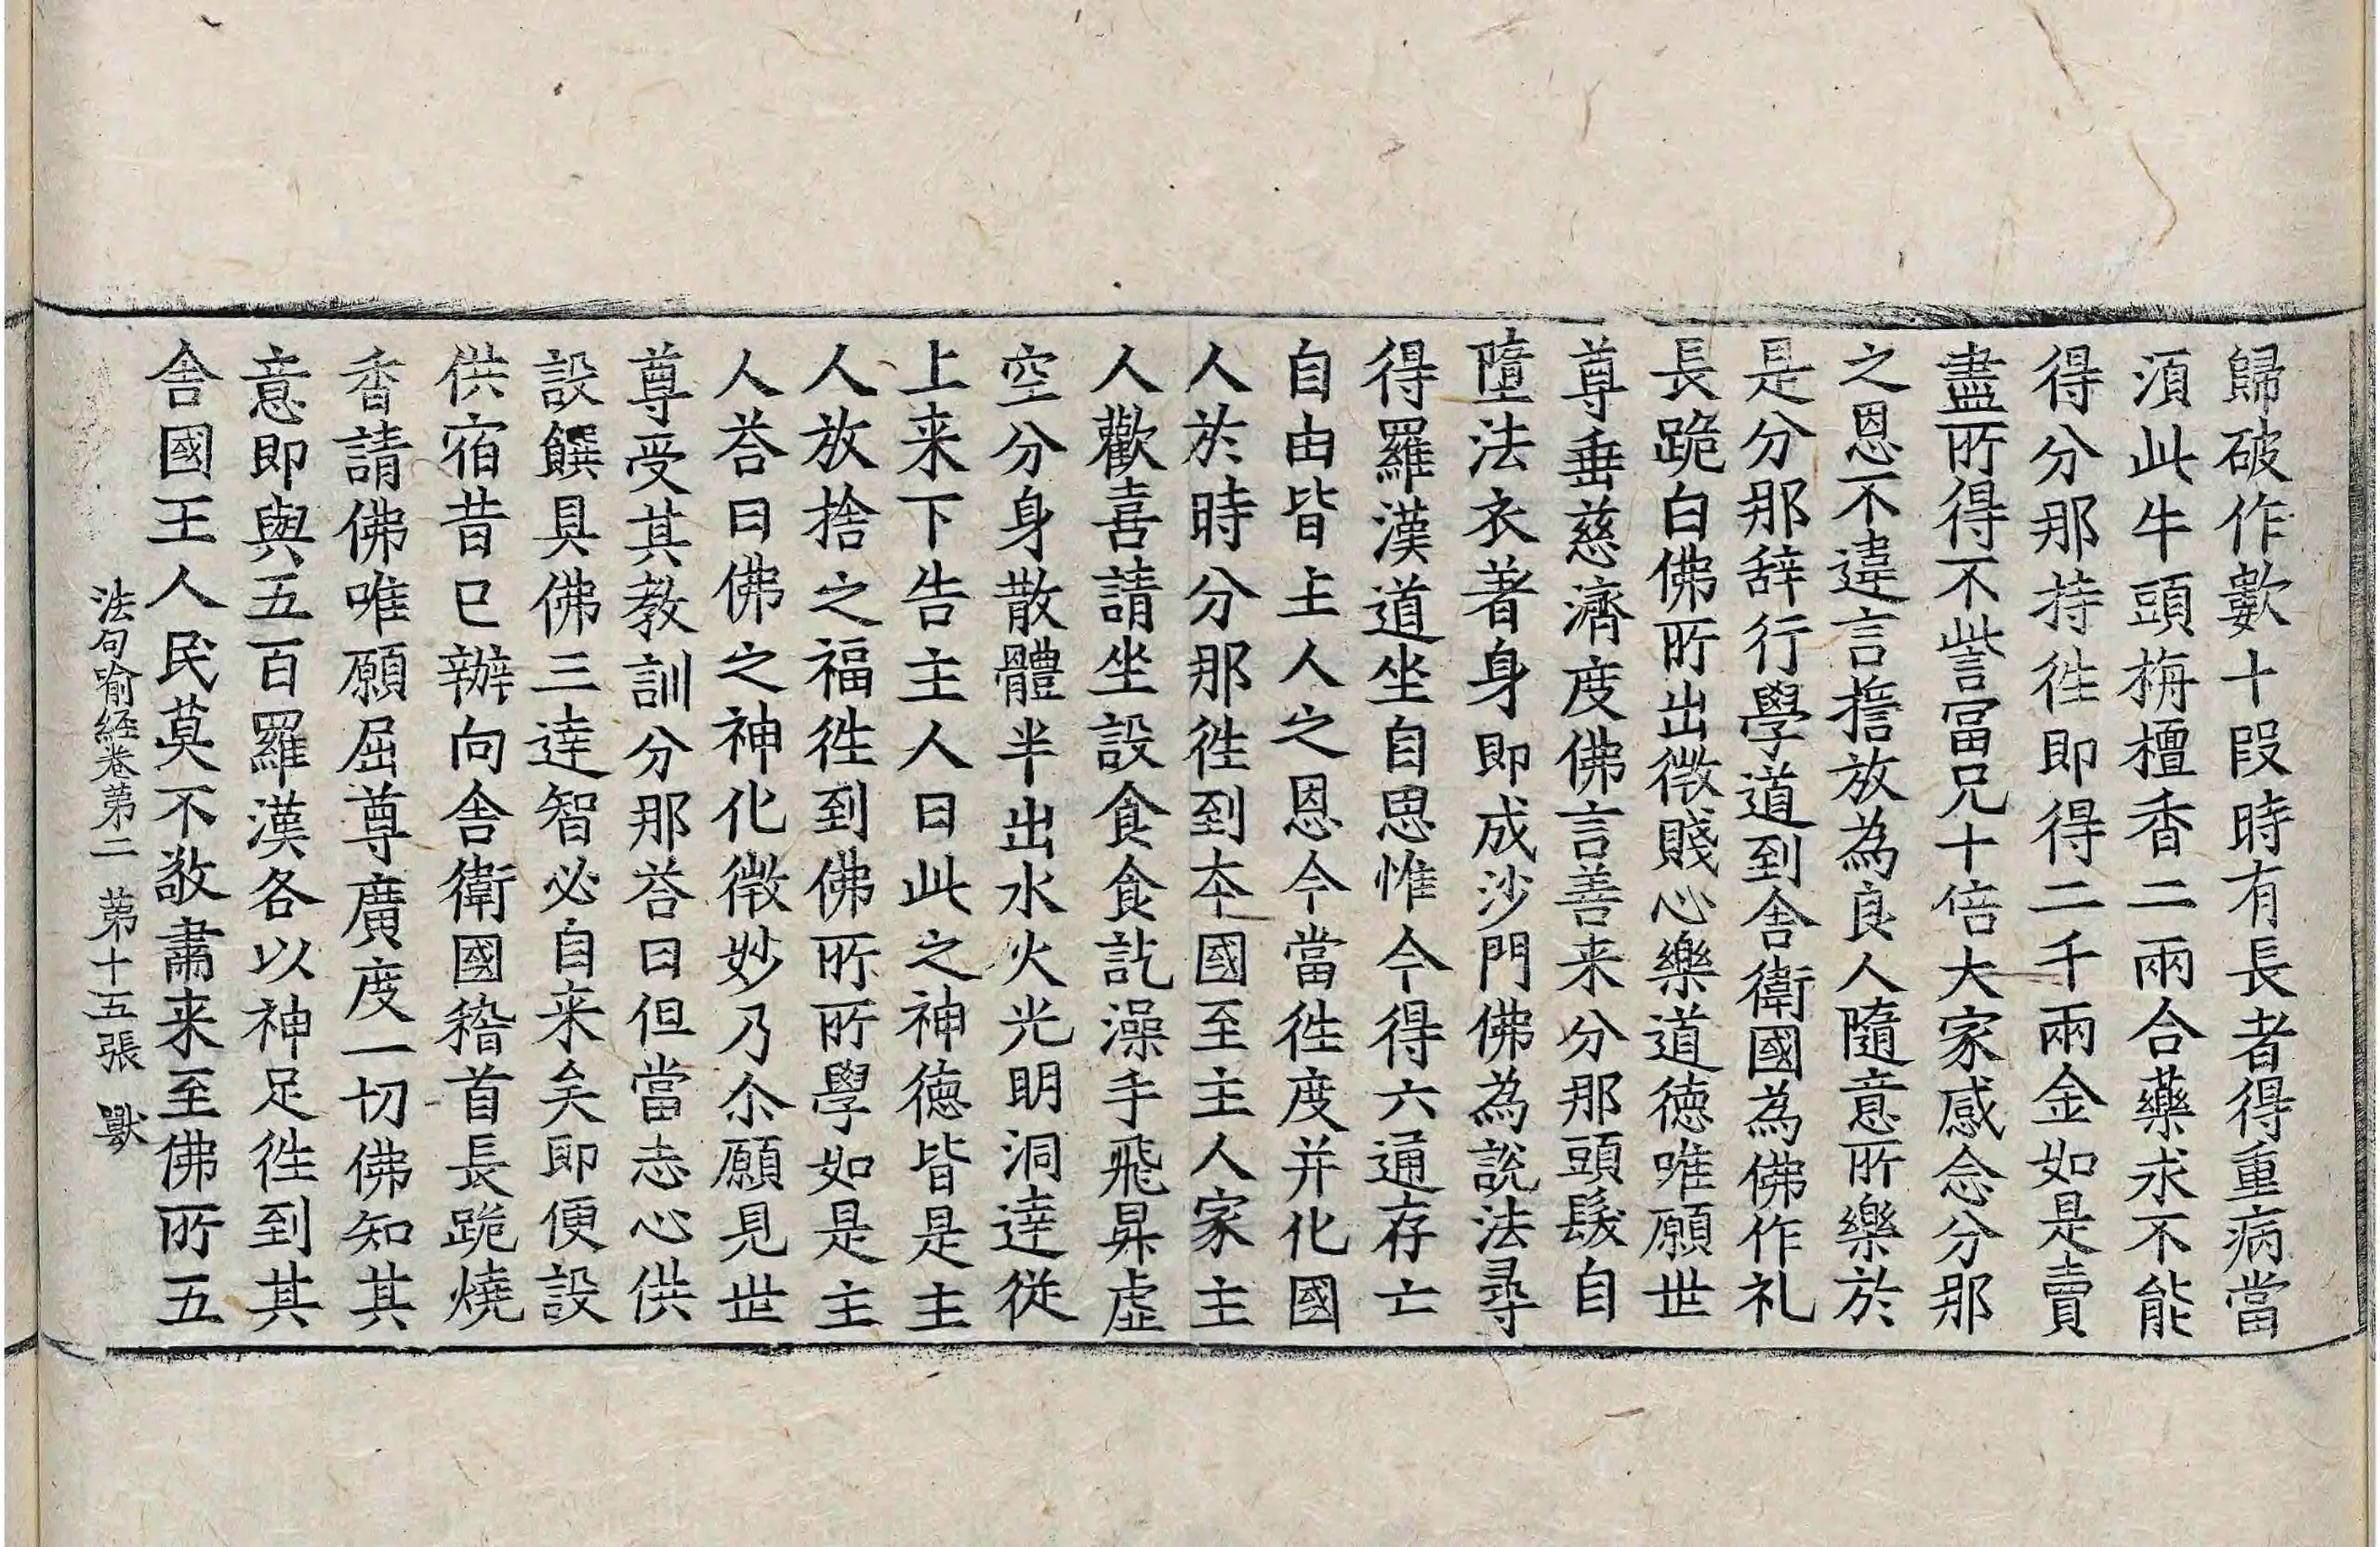 歸破作數十段時有長者得重病當
湏此牛頭栴檀香二兩合藥求不能
得分那持徃即得二千兩金如是賣
盡所得不訾冨兄十倍大家感念分那
之恩不違言擔放為良人隨意所樂於
是分那辞行學道到舎衛國為佛作礼
長跪白佛所出微賤心樂道徳唯願世
尊垂慈濟度佛言善来分那頭髮自
墮法衣著身即成沙門佛為說法尋
得羅漢道坐自思惟今得六通存亡
自由皆主人之恩今當徃度并化國
人於時分那徃到本國至主人家主
人歡喜請坐設食食訖澡手飛昇虛
空分身散體半出水火光明洞達從
上来下告主人曰此之神徳皆是主
人放捨之福徃到佛所所學如是主
人荅曰佛之神化微妙乃尒願見世
尊受其教訓分那荅曰但當志心供
設饌具佛三達智必自来矣即便設
供宿昔已辦向舎衛國稽首長跪燒
香請佛唯願屈尊廣度一切佛知其
意即與五百羅漢各以神足徃到其
舎國王人民莫不敬肅来至佛所五
法句喻経卷第二 第十五張 獸